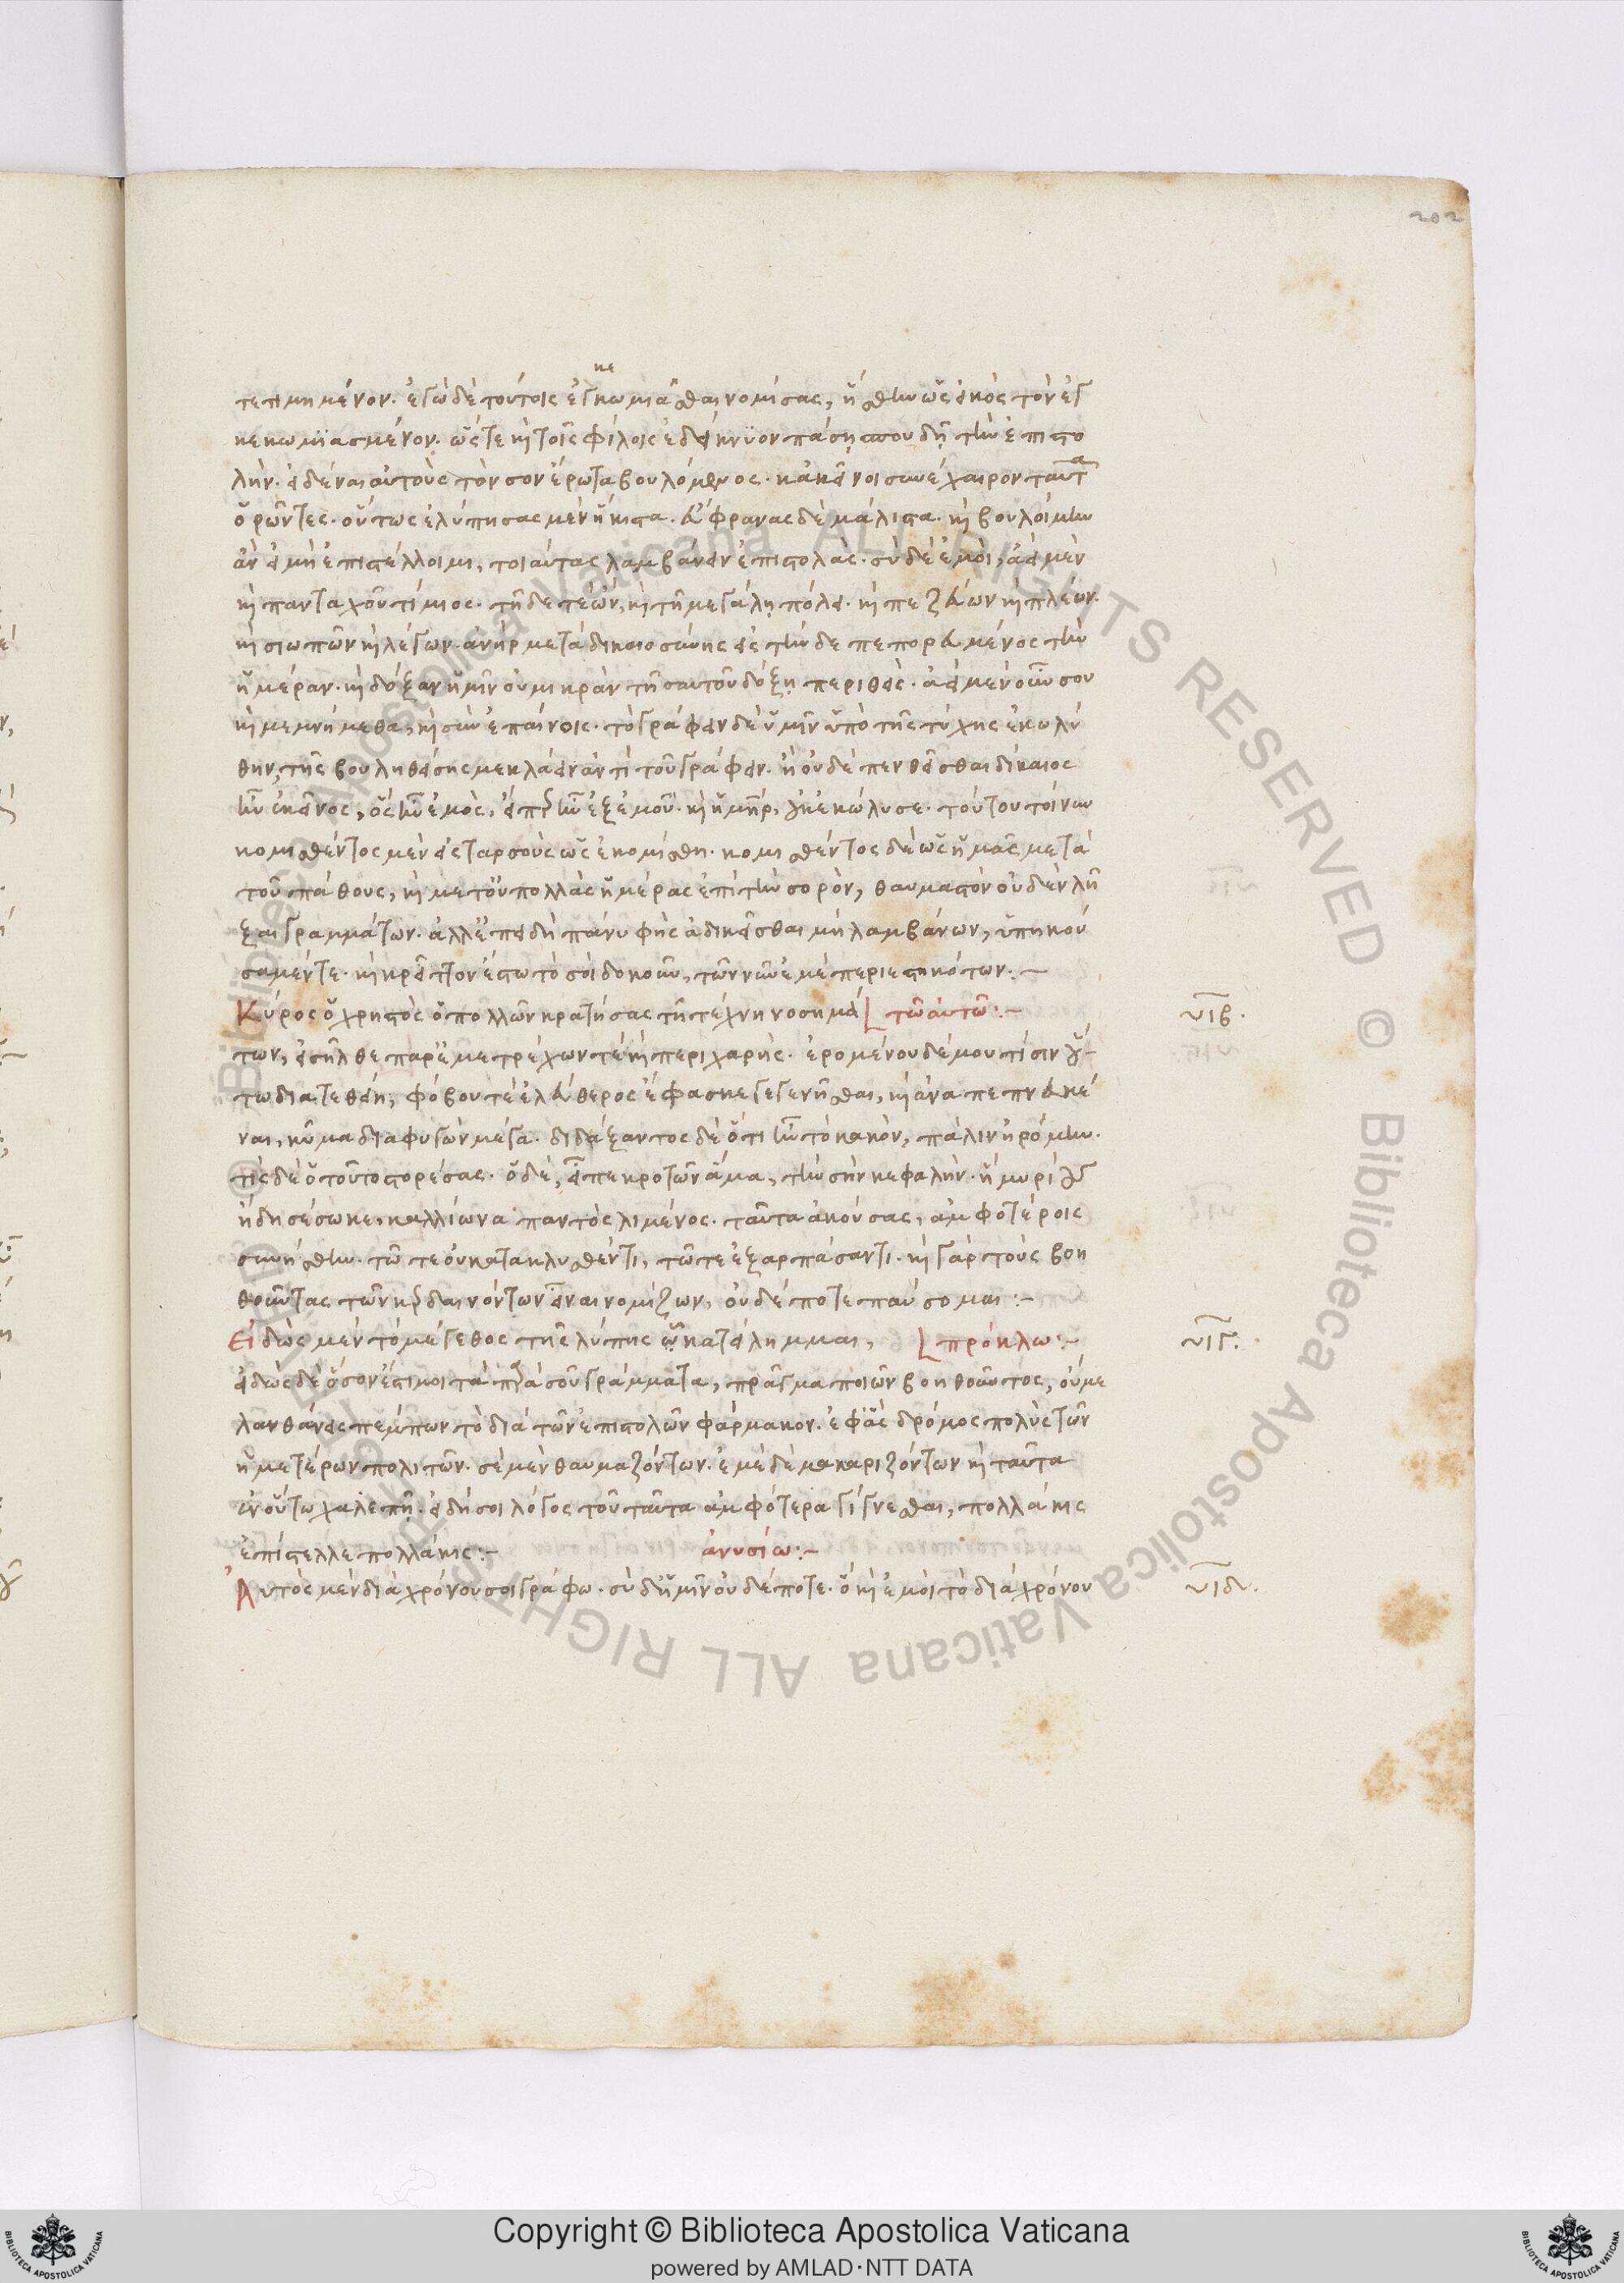 202
τετιμημένον. ἐγὼ δὲ τούτοις ἐγκεκωμιᾶσθαι νομίσας, ἥσθην ὡς εἰκὸς τὸν ἐγ
κεκωμϊασμένον. ὥστε καὶ τοῖς φίλοις ἐδείκνυον πάσῃ σπουδῇ τὴν ἐπιστο
λήν. εἰδέναι αὐτοὺς τὸν σον ἔρωτα βουλόμενος. κἀκεῖνοι συνέχαιρον ταῦτα
ὁρῶντες. οὕτως ἐλύπησας μὲν ἥκιστα. εὔφρανας δὲ μάλιστα. καὶ βουλοίμην
ἂν εἰ μὴ ἐπιστέλλοιμι, τοιαύτας λαμβάνειν ἐπιστολὰς. σὺ δὲ ἐμοὶ, ἀεὶ μὲν
καὶ πανταχοῦ τίμιος. τῇδε τε ὢν, καὶ τῇ μεγάλῃ πόλει. καὶ πεζεύων καὶ πλέων.
καὶ σιωπῶν καὶ λέγων. ἀνὴρ μετὰ δικαιοσύνης εἰς τήνδε πεπορευμένος τὴν
ἡμέραν. καὶ δόξαν ἡμῖν οὐ μικρὰν τῇ σαυτοῦ δόξῃ περιθεὶς. ἀεὶ μὲν οὖν σου
καὶ μεμνήμεθα, καὶ σὺν ἐπαίνοις. τὸ γράφειν δὲ ὑμῖν ὑπὸ τῆς τύχης ἐκωλύ
θην, τῆς βουληθείσης με κλάειν ἀντὶ τοῦ γράφειν. ἢ οὐδὲ πενθεῖσθαι δίκαιος
ἦν ἐκεῖνος, ὃς ἦν ἐμὸς, εἴπερ ἦν ἐξ ἐμοῦ. καὶ ἡ μήτηρ, οὐκ ἐκώλυσε. τούτου τοίνυν
κομισθέντος μὲν εἰς ταρσοὺς ὡς ἐκομίσθη. κομισθέντος δὲ ὡς ἡμᾶς μετὰ
τοῦ πάθους, καὶ με τοῦ πολλὰς ἡμέρας ἐπὶ τὴν σορὸν, θαυμαστὸν οὐδὲν λῆ
ξαι γραμμάτων. ἀλλ' ἐπειδὴ πάνυ φῂς ἀδικεῖσθαι μὴ λαμβάνων, ὑπηκού
σαμέν τε. καὶ κρεῖττον ἔστω τὸ σοὶ δοκοῦν, τῶν νῦν ἐμὲ περιεστηκότων:~
Κύρος ὁ χρηστὸς ὁ πολλῶν κρατήσας τῇ τέχνῃ νοσημά τῶ αὐτῶ:~ υιβ.
των, εἰσῆλθε παρ' ἐμε τρέχων τε καὶ περιχαρής. ἐρομένου δέ μου τίσιν οὕ
τω διατεθείη, φόβου τὲ ἐλεύθερος ἔφασκε γεγενῆσθαι, καὶ ἀναπεπνευκέ
ναι, κῦμα διαφυγὼν μέγα. διδάξαντος δὲ ὅτι ἦν τὸ κακὸν, πάλιν ἠρόμην.
τίς δὲ ὁ τοῦτο στορέσας. ὁ δὲ, εἶπε κροτῶν ἅμα, τὴν σὴν κεφαλήν. ἣ μυρίους
ἤδη σέσωκε, καλλίων ἅπαντος λιμένος. ταῦτα ἀκούσας, ἀμφοτέροις
συνήσθην. τῶ τε οὐ κατακλυσθέντι, τῶ τε ἐξαρπάσαντι. καὶ γὰρ τοὺς βοη
θοῦντας τῶν κερδαινόντων εἶναι νομίζων, οὐδέποτε παύσομαι:~
Εἰδὼς μὲν τὸ μέγεθος τῆς λύπης ᾧ κατείλημμαι, πρόκλω:~ υιγ.
εἰδὼς δὲ ὅσον ἐστί μοι τὰ παρὰ σοῦ γράμματα, πρᾶγμα ποιῶν βοηθοῦντος, οὔ με
λανθάνεις πέμπων τὸ διὰ τῶν ἐπιστολῶν φάρμακον. ἐφ' ἃς δρόμος πολὺς τῶν
ἡμετέρων πολιτῶν. σὲ μὲν θαυμαζόντων. ἐμὲ δὲ μακαριζόντων καὶ ταῦτα
ἐν οὕτω χαλεπῇ. εἰ δή σοι λόγος τοῦ ταῦτα ἀμφότερα γίγνεσθαι, πολλάκις
ἐπίστελλε πολλάκις:~ ἀνυσίω:~
Αὐτὸς μὲν διὰ χρόνου σοι γράφω. σὺ δ' ἡμῖν οὐδέποτε. ὃ καὶ ἐμοὶ τὸ διὰ χρόνου υιδ.
Copyright © Biblioteca Apostolica Vaticana
powered by AMLAD·NTT DATA